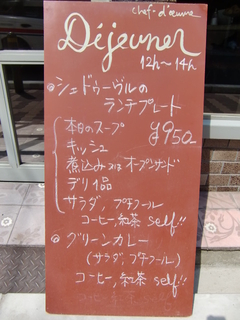 chef-d'œuvre
Déjeuner
12h〜14h
◎シェドゥーヴルの
ランチプレート
本日のスープ ¥950-
キッシュ
煮込み又はオープンサンド
デリ1品
サラダ、プチフール
コーヒー,紅茶 self!!
◎グリーンカレー
(サラダ,プチフール)
コーヒー,紅茶 self!!